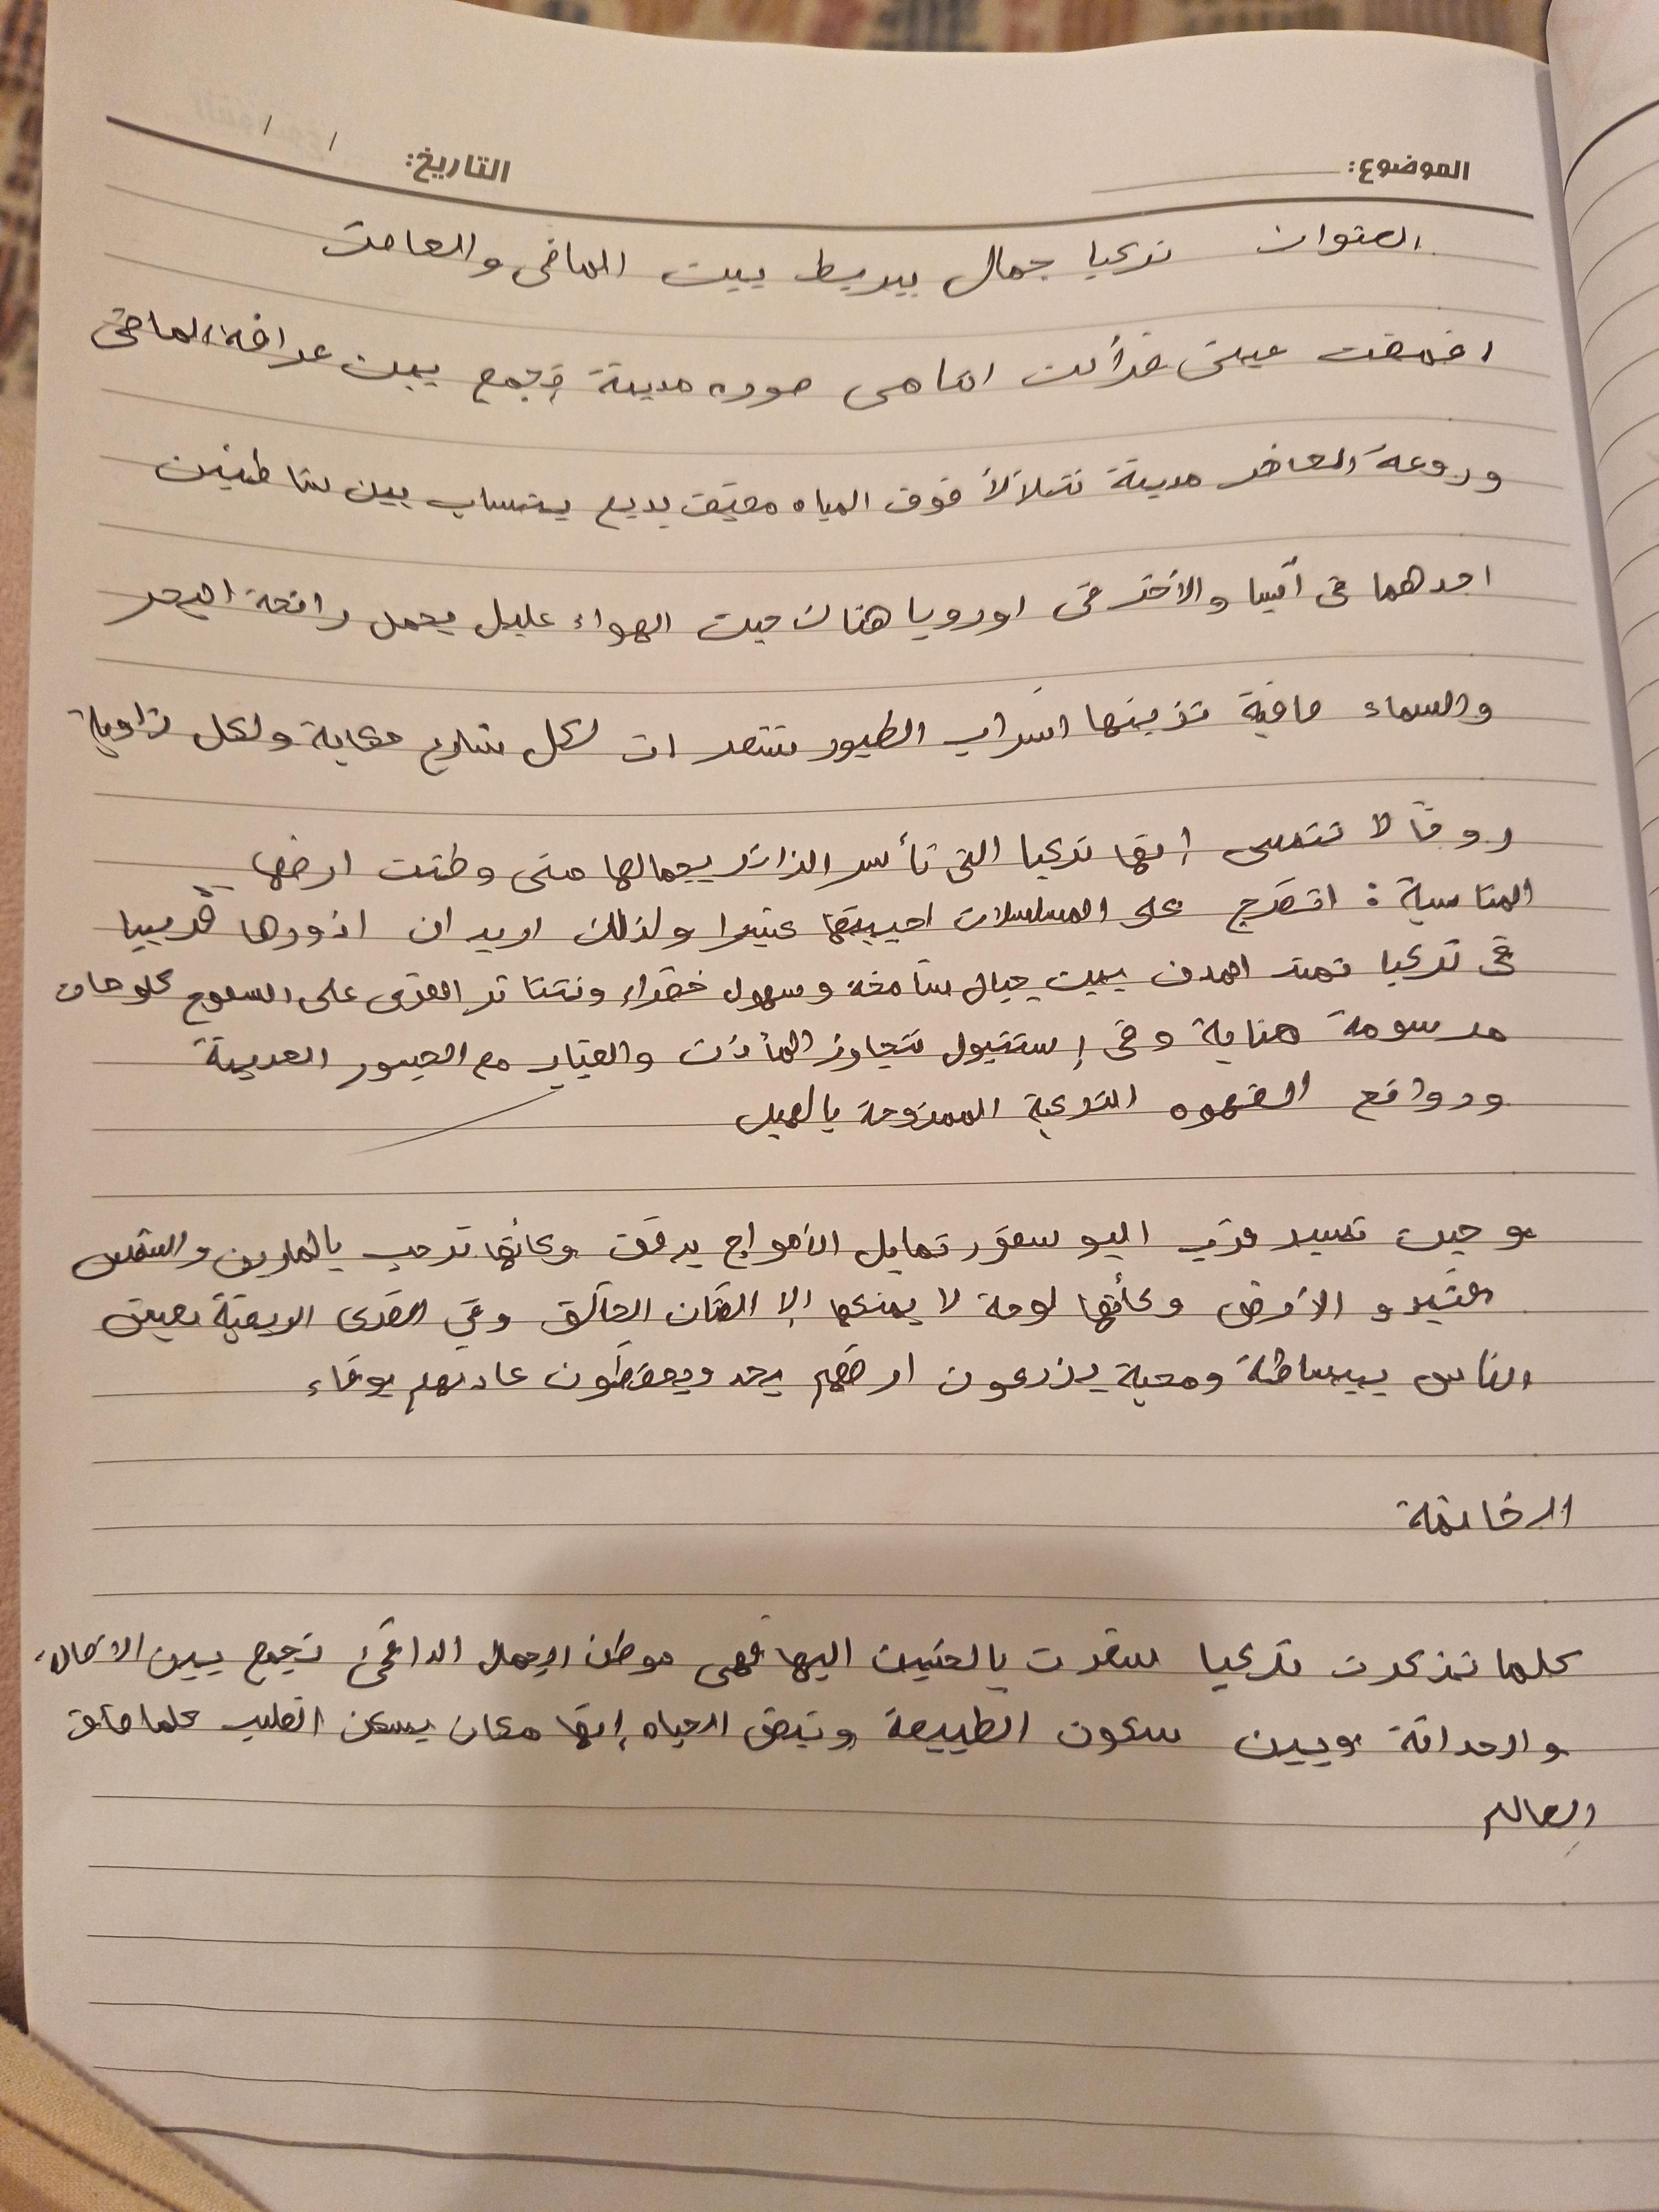 الموضوع:
التاريخ: / /
العنوان تركيا جمال يربط بين الماضي والحاضر
اغمضت عيني فرأيت امامي صوره مدينة تجمع بين عراقة الماضي
وروعة الحاضر مدينة تتلألأ فوق المياه مضيق بديع ينساب بين شاطئين
احدهما في آسيا والآخر في اوروبا هناك حيث الهواء عليل يحمل رائحة البحر
والسماء صافية تزينها اسراب الطيور تشعر ان لكل شارع حكاية ولكل زاوية
روحًا لا تنسى إنها تركيا التي تأسر الزائر بجمالها متى وطئت ارضها
المناسبة : اتفرج على المسلسلات احببتها كثيرا ولذلك اريد ان ازورها قريبا
في تركيا تمتد المدن بين جبال شامخة وسهول خضراء وتتناثر القرى على السفوح كلوحات
مرسومة بعناية وفي إستنبول تتجاور المآذن والقباب مع الجسور الحديثة
وروائح القهوه التركية الممزوجة بالهيل
وحين تسير قرب البوسفور تمايل الأمواج برفق وكأنها ترحب بالمارين والشمس
والأرض وكأنها لوحة لا يصنعها إلا الفنان الخالق وفي القرى الريفية يعيش
الناس ببساطة ومحبة يزرعون ارضهم بجد ويحفظون عاداتهم بوفاء
الخاتمة
كلما تذكرت تركيا شعرت بالحنين اليها فهي موطن الجمال الدافئ تجمع بين الاصالة
والحداثة وبين سكون الطبيعة ونبض الحياه إنها مكان يسكن القلب كلما ضاق
العالم